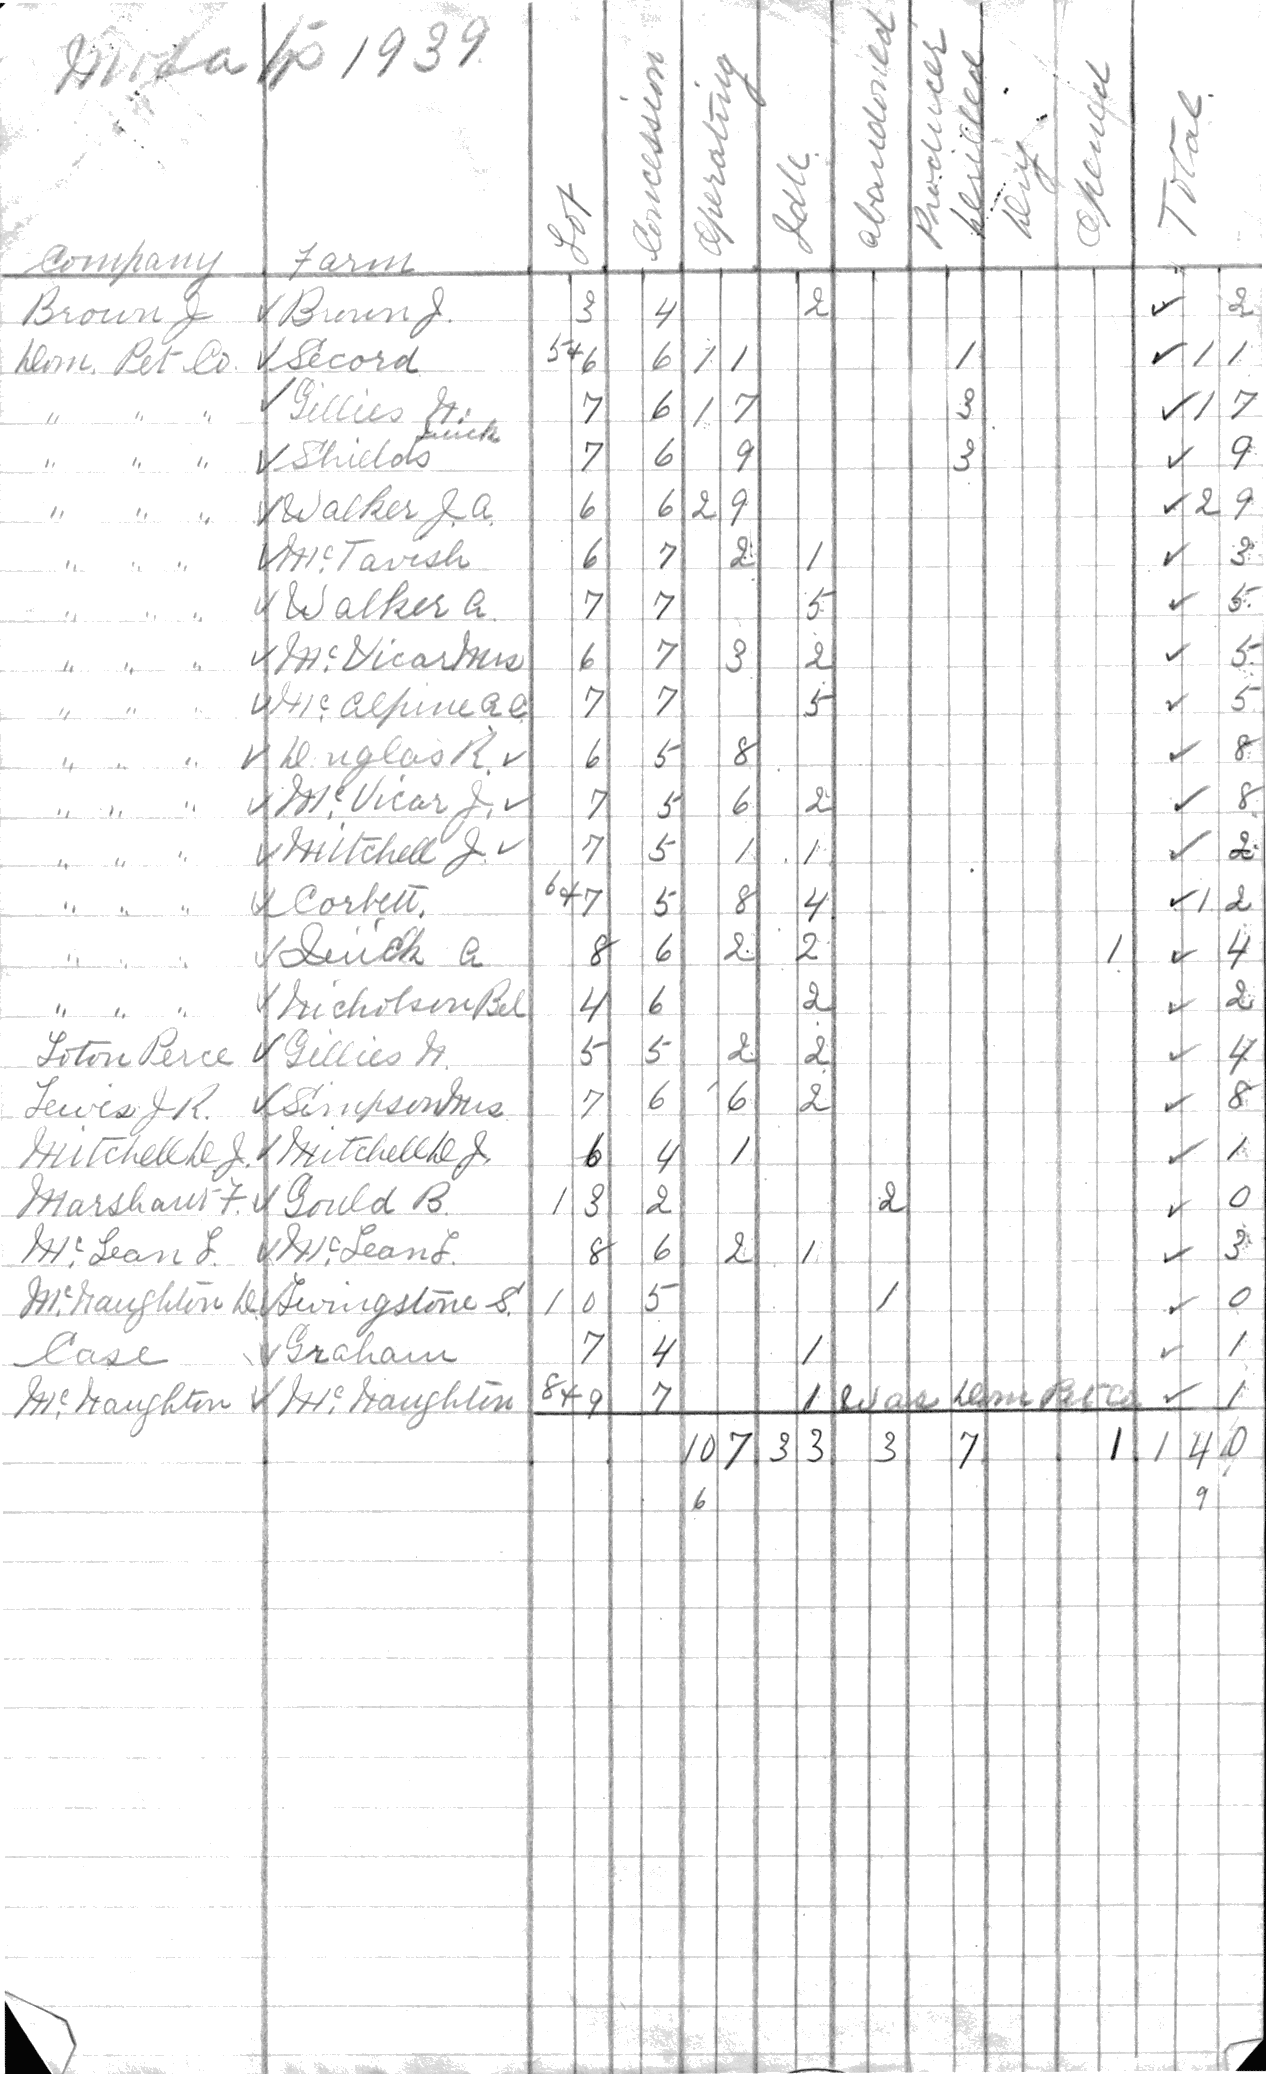 Mosa Tp 1939
Company Farm Lot Concession Operating Idle abandoned Producer Drilled Dry Opened Total
Brown J ✓ Brown J. 3 4 2 ✓ 2
Dom. Pet Co. ✓ Secord 5+6 6 11 1 ✓ 11
" " " ✓ Gillies N. 7 6 17 3 ✓ 17
Quick
" " " ✓ Shields 7 6 9 3 ✓ 9
" " " ✓ Walker J.A. 6 6 29 ✓ 29
" " " ✓ McTavish 6 7 2 1 ✓ 3
" " " ✓ Walker A. 7 7 5 ✓ 5
" " " ✓ McVicar Mrs 6 7 3 2 ✓ 5
" " " ✓ McAlpine A C 7 7 5 ✓ 5
" " " ✓ Duglas R. ✓ 6 5 8 ✓ 8
" " " ✓ McVicar J. ✓ 7 5 6 2 ✓ 8
" " " ✓ Mitchell J. ✓ 7 5 1 1 ✓ 2
" " " ✓ Corbett. 6+7 5 8 4 ✓ 12
" " " ✓ Quick A 8 6 2 2 1 ✓ 4
" " " ✓ Nicholson Bel 4 6 2 ✓ 2
Loton Perce ✓ Gillies N. 5 5 2 2 ✓ 4
Lewis J R. ✓ Simpson Mrs 7 6 6 2 ✓ 8
Mitchell D J. ✓ Mitchell D J. 6 4 1 ✓ 1
F. ✓ Gould B. 13 2 2 ✓ 0
McLean L. ✓ McLean L. 8 6 2 1 ✓ 3
McNaughton D. Livingstone S. 10 5 1 ✓ 0
Case ✓ Graham 7 4 1 ✓ 1
McNaughton ✓ McNaughton 8+9 7 1 Was Dom Pet Co ✓ 1
107 33 3 7 1 140
6 9